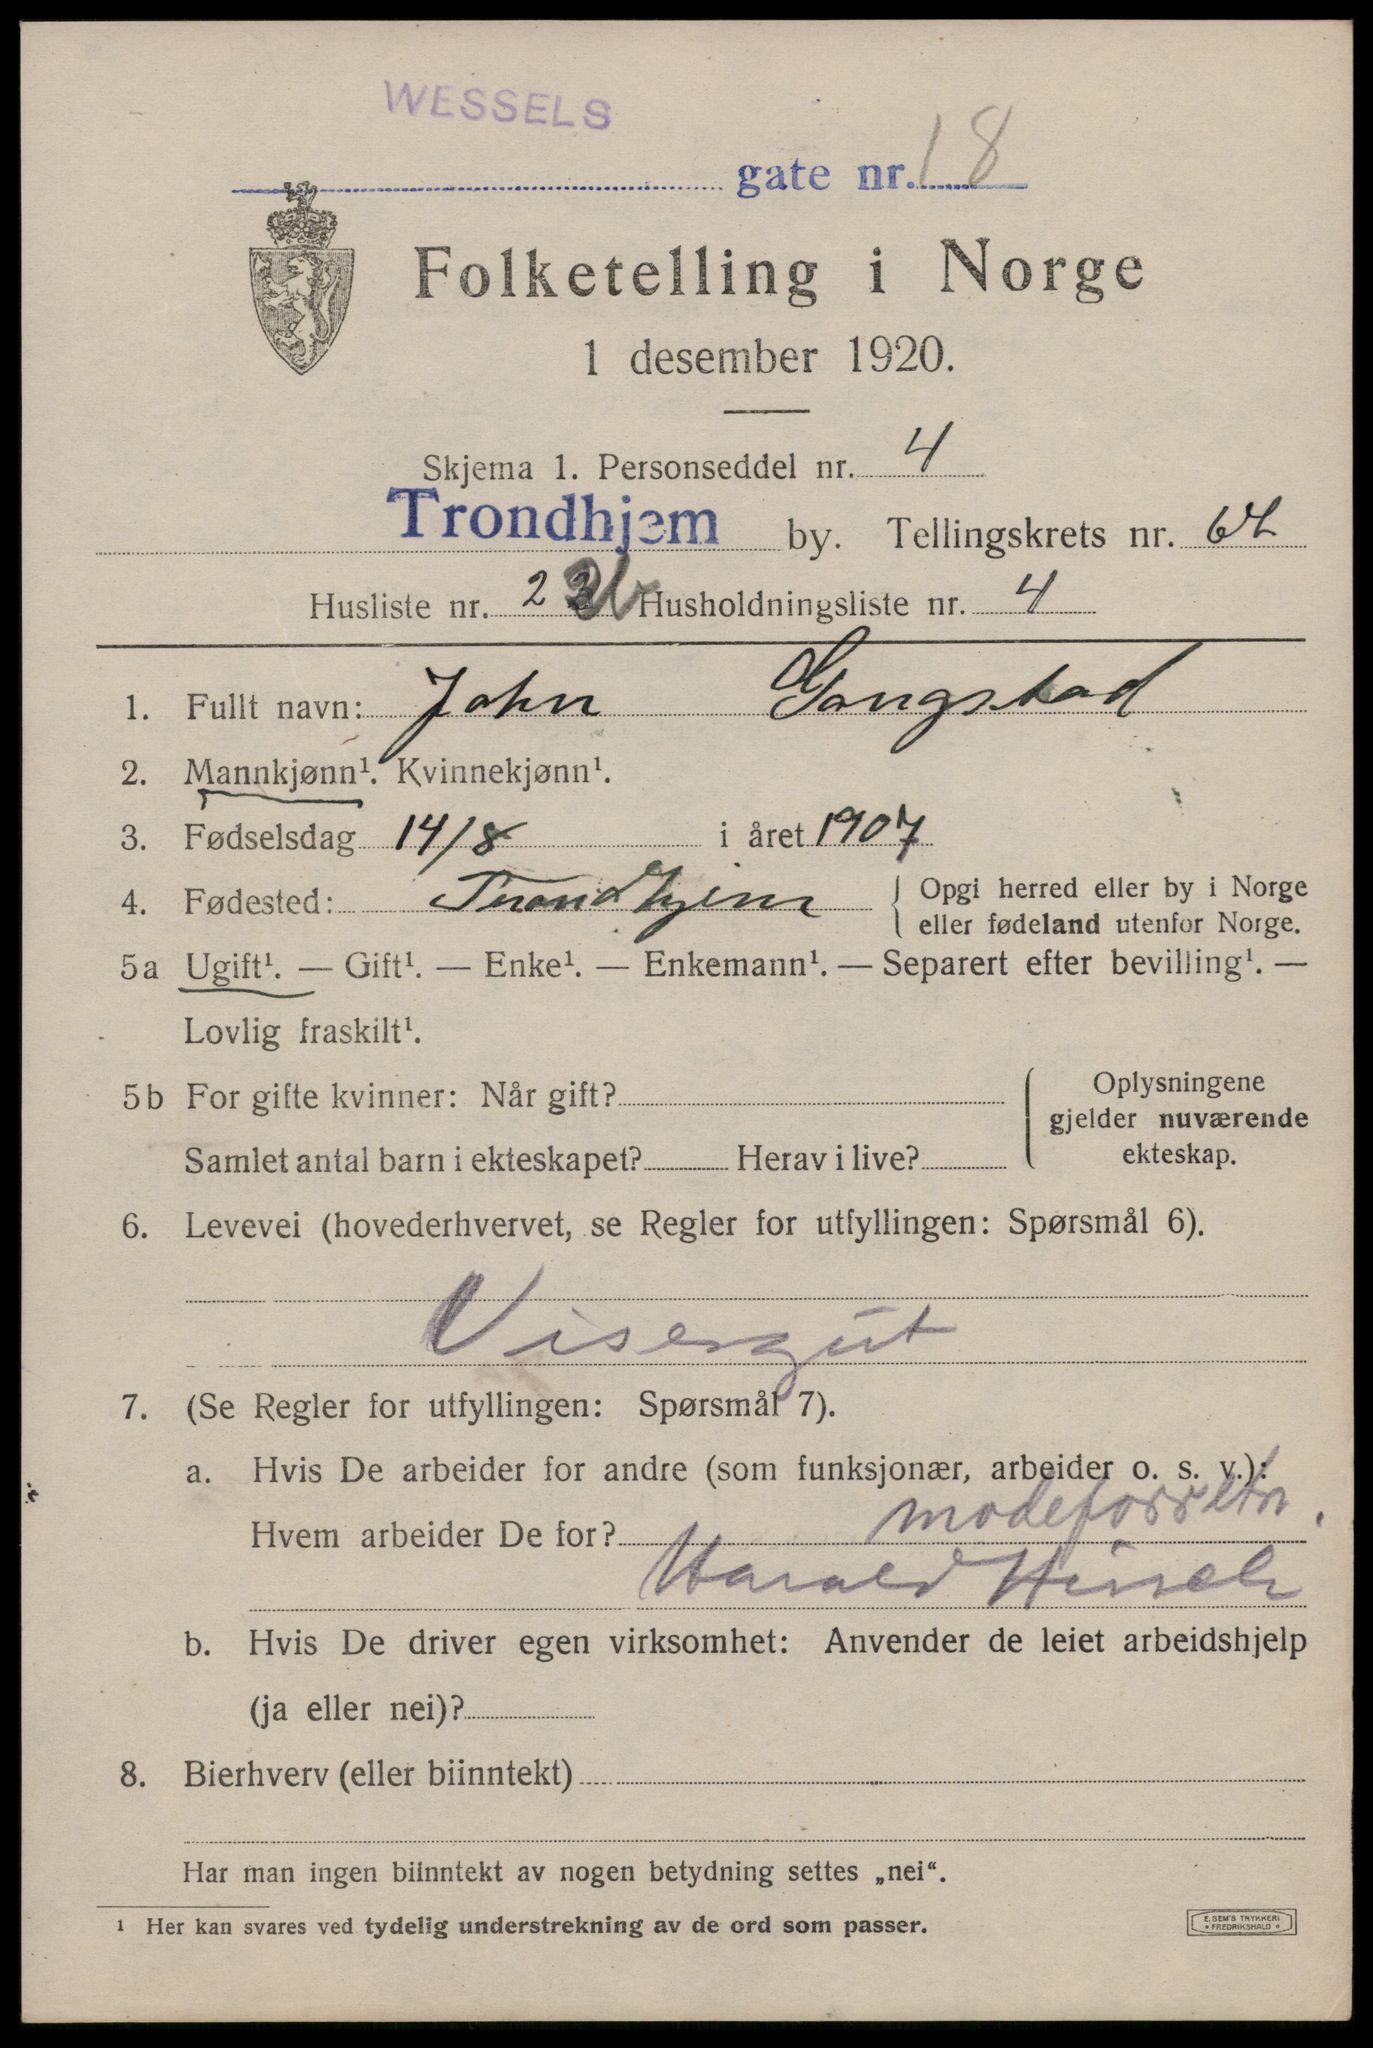 WESSELS
gate nr. 18
Folketelling i Norge
1 desember 1920.
Skjema 1. Personseddel nr. 4
Trondhjem by. Tellingskrets nr. 64
Husliste nr. 2 Husholdningsliste nr. 4
1. Fullt navn: John Gangstad
2. Mannkjønn¹. Kvinnekjønn¹.
3. Fødselsdag 14/8 i året 1907
4. Fødested: Trondhjem { Opgi herred eller by i Norge
eller fødeland utenfor Norge.
5a Ugift¹. — Gift¹. — Enke¹. — Enkemann¹. — Separert efter bevilling¹. —
Lovlig fraskilt¹.
5b For gifte kvinner: Når gift?
Samlet antal barn i ekteskapet? Herav i live?
Oplysningene
gjelder nuværende
ekteskap.
6. Levevei (hovederhvervet, se Regler for utfyllingen: Spørsmål 6).
Visergut
7. (Se Regler for utfyllingen: Spørsmål 7).
a. Hvis De arbeider for andre (som funksjonær, arbeider o. s. v.):
Hvem arbeider De for? modeforretn.
Harald Hirsch
b. Hvis De driver egen virksomhet: Anvender de leiet arbeidshjelp
(ja eller nei)?
8. Bierhverv (eller biinntekt)
Har man ingen biinntekt av nogen betydning settes „nei“.
¹ Her kan svares ved tydelig understrekning av de ord som passer.
E. SEM'S TRYKKERI
• FREDRIKSHALD •